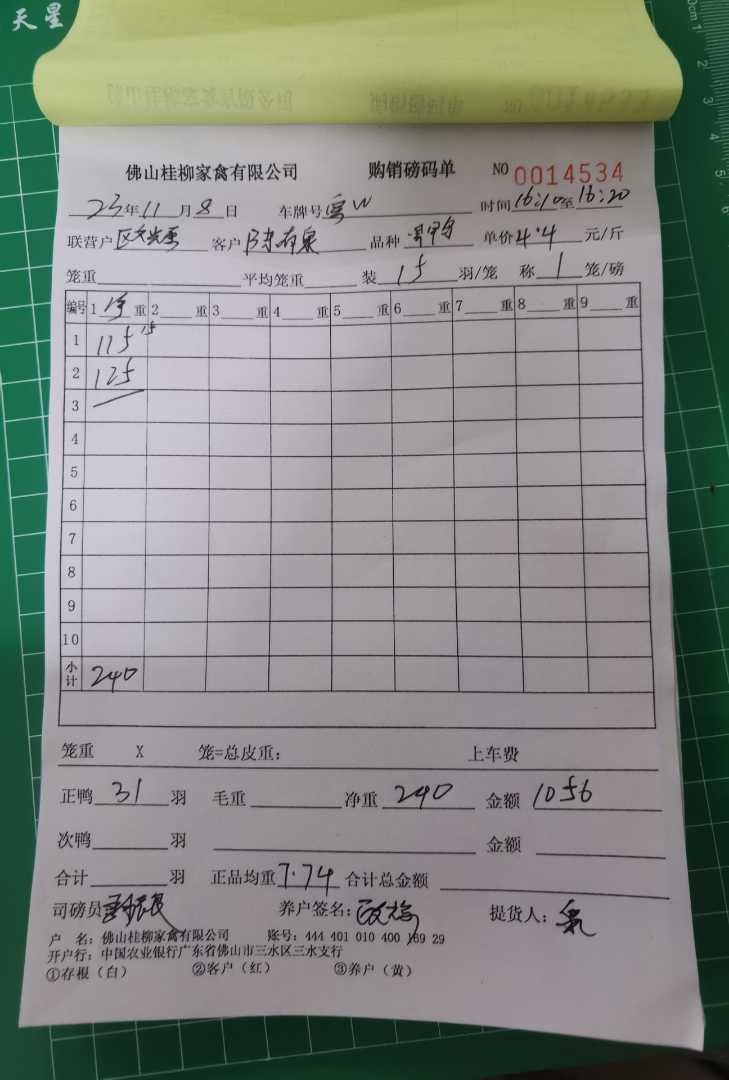 天星
佛山桂柳家禽有限公司 购销磅码单 NO 0014534
23年11月8日 车牌号 时间16:10至16:20
联营户 客户 品种 单价4.4元/斤
笼重 平均笼重 装15羽/笼 称1笼/磅
编号 1净重 2重 3重 4重 5重 6重 7重 8重 9重
1 115 15
2 125
3
4
5
6
7
8
9
10
小计 240
笼重 X 笼=总皮重: 上车费
正鸭31羽 毛重 净重240 金额1056
次鸭羽 金额
合计羽 正品均重7.74 合计总金额
司磅员 养户签名: 提货人:
户 名: 佛山桂柳家禽有限公司 账号: 444 401 010 400 169 29
开户行: 中国农业银行广东省佛山市三水区三水支行
①存根(白) ②客户(红) ③养户(黄)